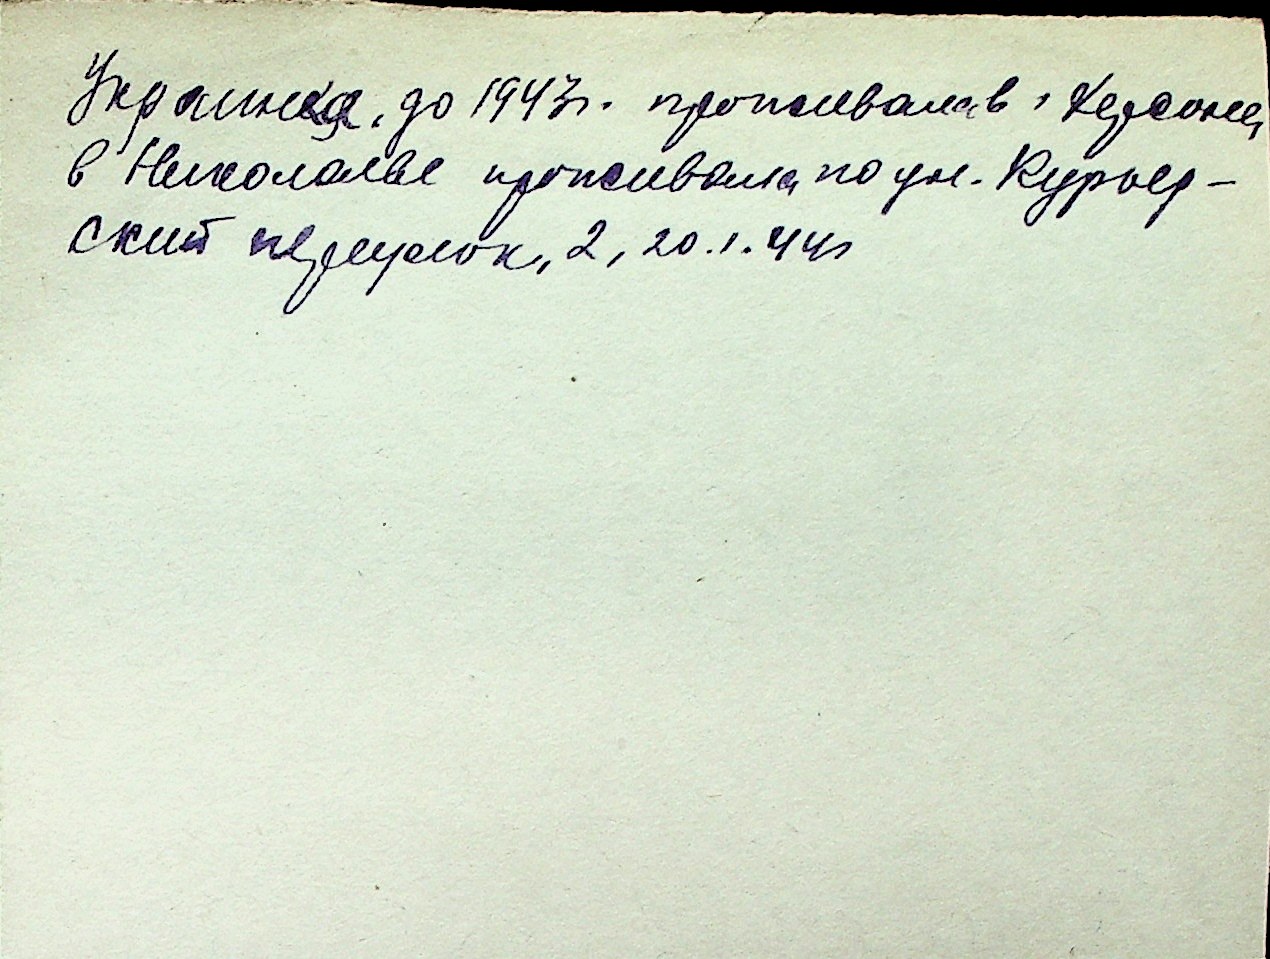 Украинка, до 1943 г. проживала в г. Херсоне,
в Николаеве проживала по ул. Курьер-
ский переулок, 2, 20.1.44 г